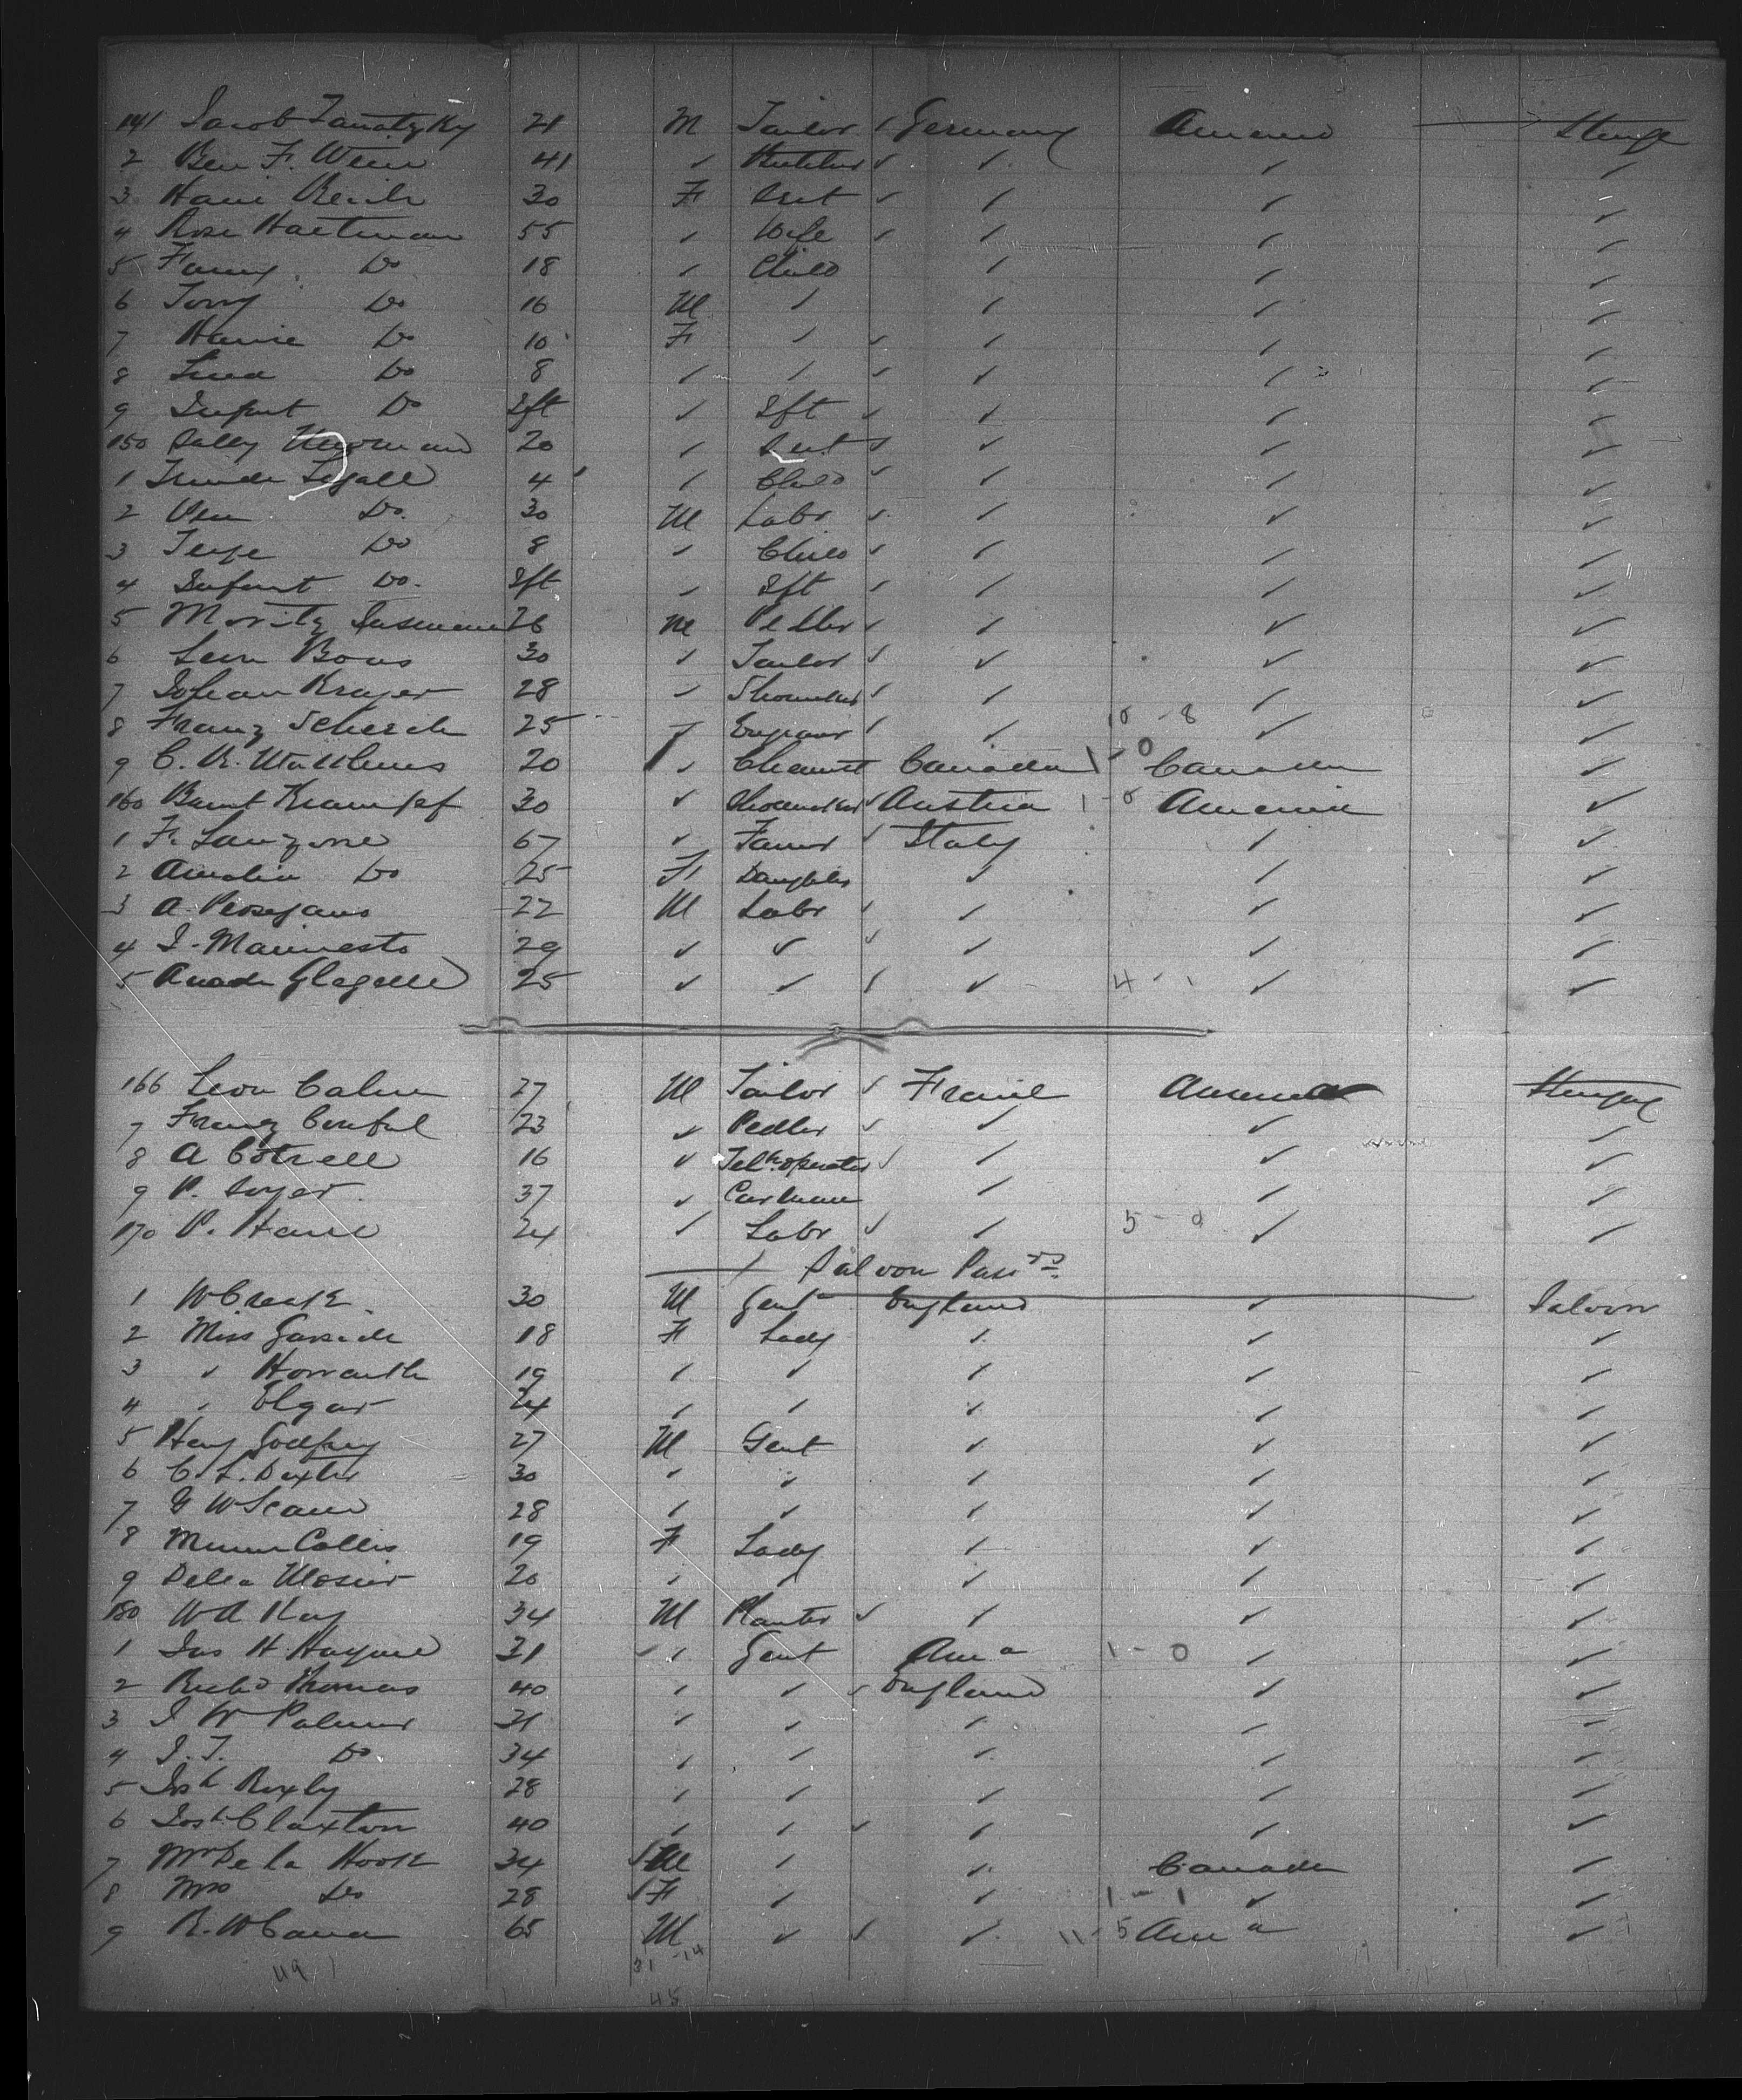 141 Jacob 21 M Tailor Germany America Steerage
2 Ben F. Wein 41 ✓ Butcher ✓ ✓ ✓ ✓
3 Hani Reich 30 F Svt ✓ ✓ ✓ ✓
4 Rosa Hartman 55 ✓ Wife ✓ ✓ ✓ ✓
5 Fanny Do 18 ✓ Child ✓ ✓ ✓
6 Tony Do 16 M ✓ ✓ ✓ ✓
7 Hanie Do 10 F ✓ ✓ ✓ ✓ ✓
8 Lina Do 8 ✓ ✓ ✓ ✓ ✓ ✓
9 Infant Do Ift ✓ Ift ✓ ✓ ✓ ✓
150 Sally 20 ✓ Svt ✓ ✓ ✓ ✓
1 Segall 4 ✓ Child ✓ ✓ ✓ ✓
2 Do. 30 M Labr ✓ ✓ ✓ ✓
3 Do 8 ✓ Child ✓ ✓ ✓ ✓
4 Infant Do. Ift ✓ Ift ✓ ✓ ✓ ✓
5 Moritz 26 M Pedler ✓ ✓ ✓ ✓
6 Leon Bons 30 ✓ Tailor ✓ ✓ ✓ ✓
7 Johan Krayer 28 ✓ Shoemaker ✓ ✓ ✓ ✓
8 Franz Scherch 25 ✓ ✓ ✓ 10 - 8 ✓ ✓
9 C. R. Matthews 20 ✓ Chemist Canada 1 - 0 Canada ✓
160 Krampf 30 ✓ Shoemaker ✓ Austria 1 - 0 America ✓
1 F. Lanzone 67 ✓ Farmer ✓ Italy ✓ ✓
2 Amalia Do 25 F Daughter ✓ ✓ ✓
3 A. 22 M Labr ✓ ✓ ✓ ✓
4 29 ✓ ✓ ✓ ✓ ✓ ✓
5 25 ✓ ✓ ✓ ✓ 4 - 1 ✓ ✓
166 Leon Calm 27 M Tailor ✓ France America Steerage
7 Franz 23 ✓ Pedler ✓ ✓ ✓ ✓
8 A Cotrell 16 ✓ Telh. operator ✓ ✓ ✓ ✓
9 P. Soyer 37 ✓ Carman ✓ ✓ ✓
170 P. Hane 24 ✓ Labr ✓ ✓ 5 - 0 ✓ ✓
Saloon Passrs
1 W Creak 30 M Gent England ✓ Saloon
2 Miss Garside 18 F Lady ✓ ✓ ✓
3 ✓ Howarth 19 ✓ ✓ ✓ ✓ ✓
4 ✓ Elgar 24 ✓ ✓ ✓ ✓ ✓
5 Hey Godfrey 27 M Gent ✓ ✓ ✓
6 C. L. Dexter 30 ✓ ✓ ✓ ✓ ✓
7 G W 28 ✓ ✓ ✓ ✓ ✓
8 Minnie Collis 19 F Lady ✓ ✓ ✓
9 Delia Mosier 20 ✓ ✓ ✓ ✓ ✓
180 W A Kay 34 M Planter ✓ ✓ ✓ ✓
1 Jas H. Hayne 31 ✓ ✓ Gent Ama 1 - 0 ✓ ✓
2 Richd Thomas 40 ✓ ✓ ✓ England ✓ ✓
3 J W Palmer 31 ✓ ✓ ✓ ✓ ✓
4 J. T. Do. 34 ✓ ✓ ✓ ✓ ✓
5 Josh Roxby 28 ✓ ✓ ✓ ✓ ✓
6 Josh. Claxton 40 ✓ ✓ ✓ ✓ ✓ ✓
7 Mr De la Hook 34 ✓ M ✓ ✓ Canada ✓
8 Mrs Do 28 ✓ F ✓ ✓ 1 - 1 ✓ ✓
9 R. W Cana 65 M ✓ ✓ ✓ 11 - 5 Ama ✓
49 31 - 14
45